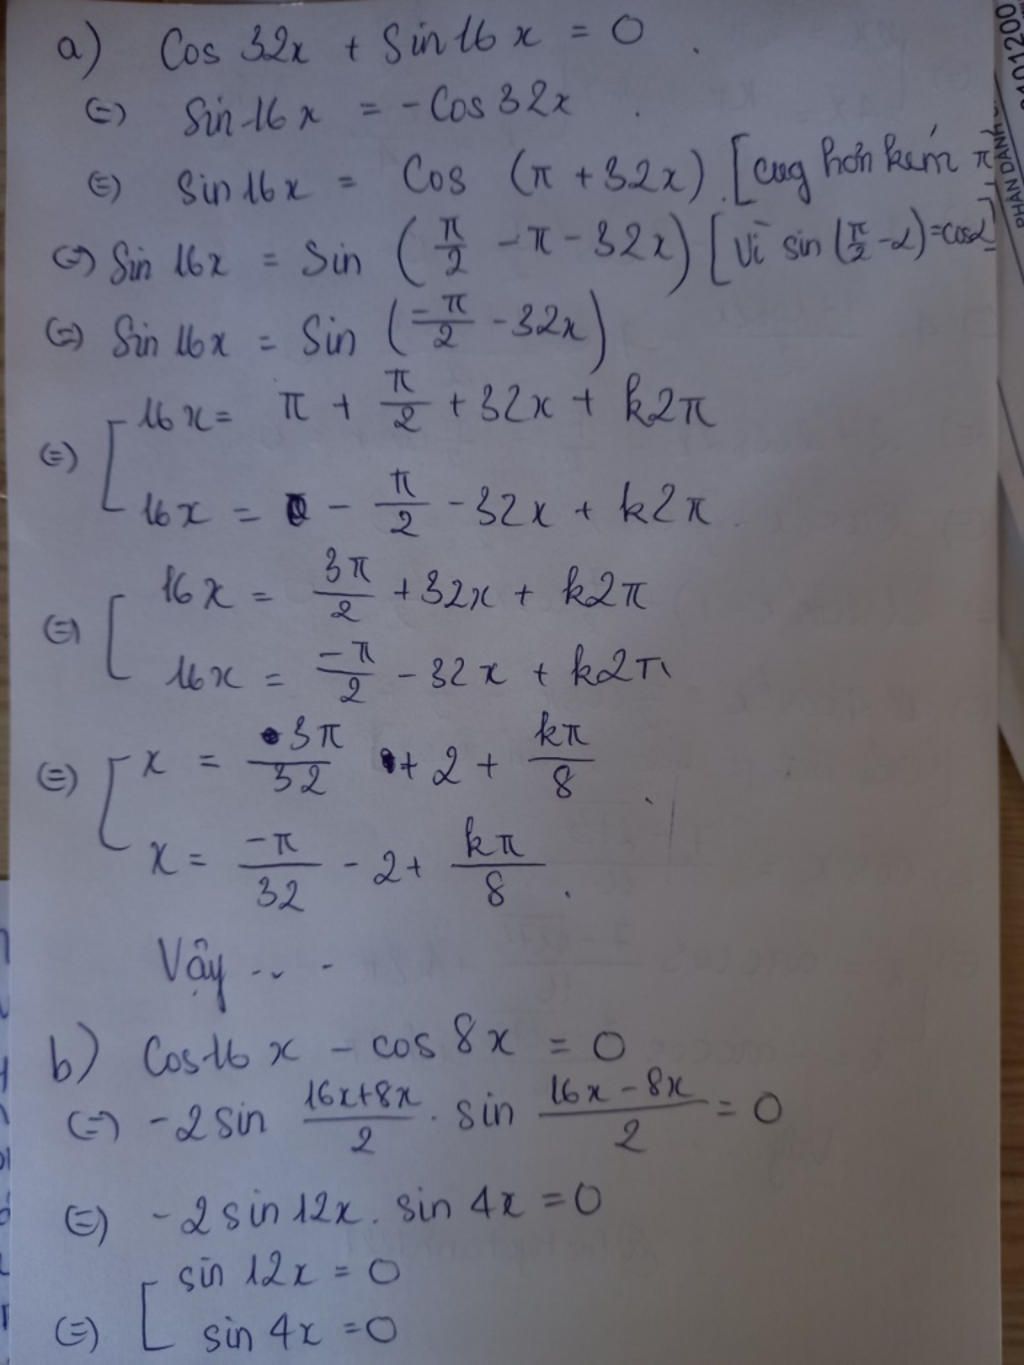 a) Cos 32x + Sin 16x = 0 .
(=) Sin 16x = - Cos 32x .
(=) Sin 16x = Cos (π + 32x) [cung hơn kém π]
(=) Sin 16x = Sin (π/2 - π - 32x) [Vì sin (π/2 - α) = cosα]
(=) Sin 16x = Sin (-π/2 - 32x)
(=) [ 16x = π + π/2 + 32x + k2π
16x = - π/2 - 32x + k2π
(=) [ 16x = 3π/2 + 32x + k2π
16x = -π/2 - 32x + k2π
(=) [ x = 3π/32 + 2 + kπ/8
x = -π/32 - 2 + kπ/8 .
Vậy ...
b) Cos 16x - cos 8x = 0
(=) -2 sin (16x+8x)/2 . sin (16x - 8x)/2 = 0
(=) -2 sin 12x . sin 4x = 0
(=) [ sin 12x = 0
sin 4x = 0
PHAN DANH